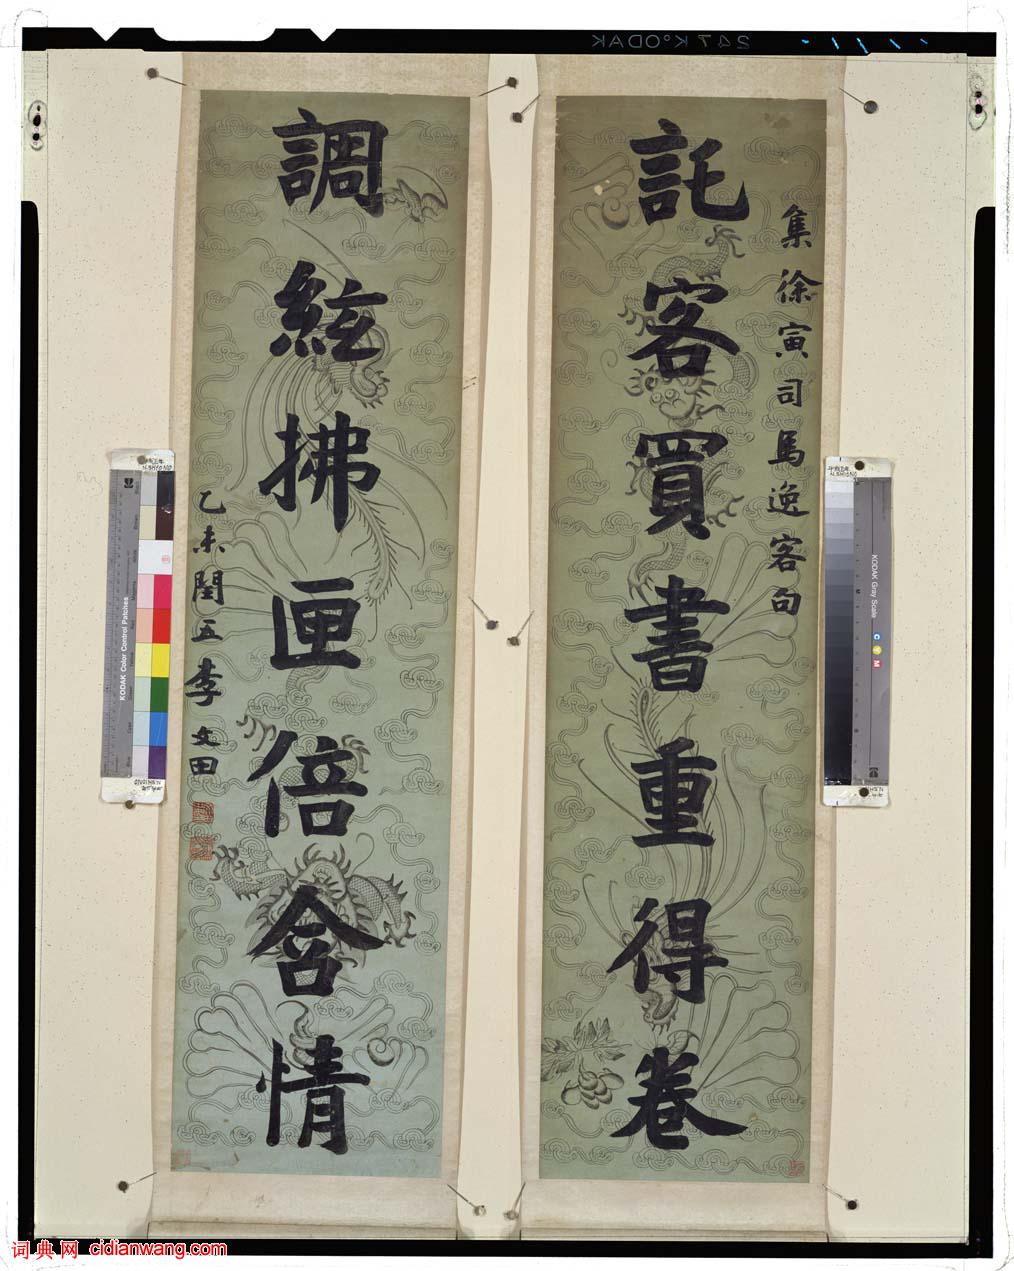 集徐寅司馬逸客句
託客買書重得卷
調絃拂匣倍含情
乙未閏五李文田
KODAK Color Control Patches
KODAK Gray Scale
C Y M
247 KODAK
词典网 cidianwang.com